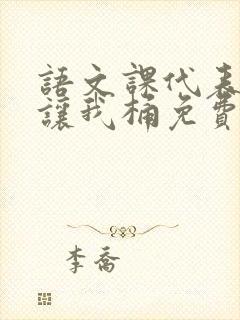 語文課代表
讓我桶免費
李喬